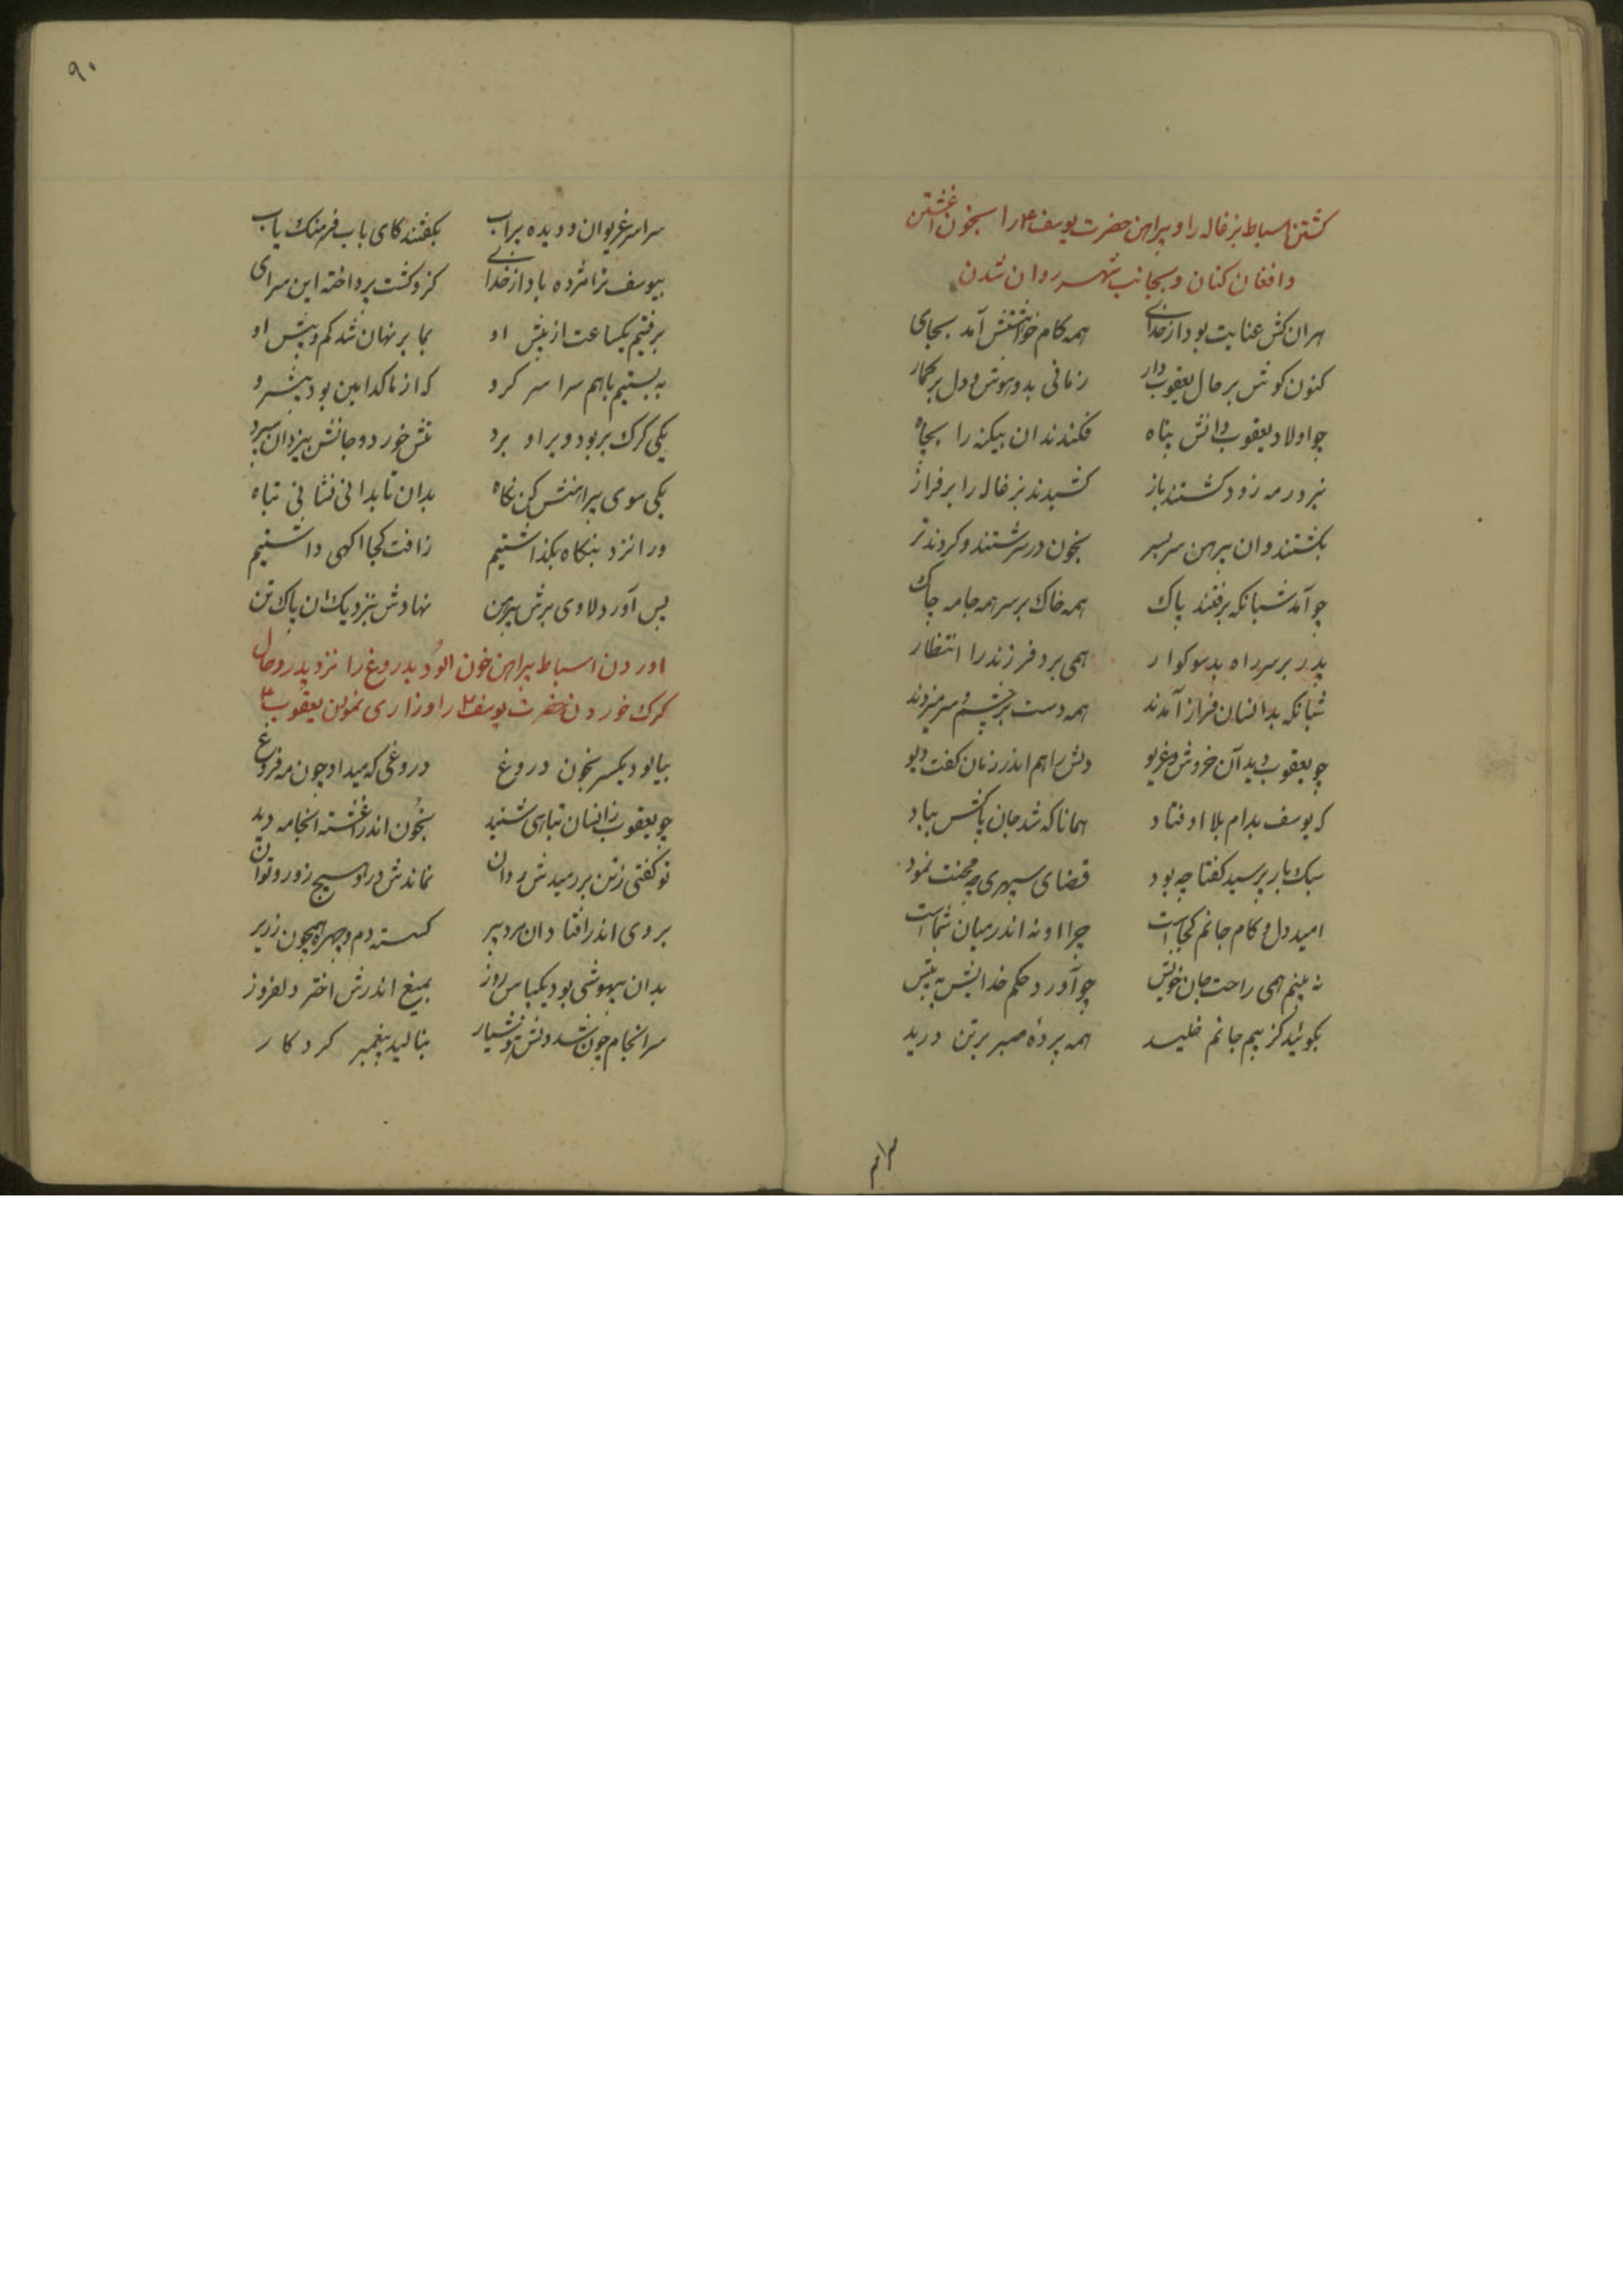 کشتن اسباط بزغاله را و پیراهن حضرت یوسف ع را بخون اغشتن
و افغان کنان و بجانب شهر روان شدن
هران کش عنایت بود از خدای همه کام خواستنش آمد بجای
کنون کوش بر حال یعقوب دار زمانی بدو هوش و دل برکمار
چو اولاد یعقوب دانش پناه فکندند ان بیکنه را بچاه
بنزد رمه زود کشتند باز کشیدند بزغاله را بر فراز
بکشتند و ان پیرهن سر بسر بخون در سرشتند و کردند تر
چو آمد شبانکه برفتند پاک همه خاک بر سر همه جامه چاک
پدر بر سر راه بد سوکوار همی برد فرزند را انتظار
شبانکه بدانسان فراز آمدند همه دست بر چشم و سر میزدند
چو یعقوب دید آن خروش و غریو دلش را هم اندر زمان کفت دیو
که یوسف بدام بلا اوفتاد همانا که شد جان پاکش بباد
سبک بار پرسید کفتا چه بود قضای سپهری چه محنت نمود
امید دل و کام جانم کجاست چرا او نه اندر میان شماست
نه بینم همی راحت جان خویش چو آورد حکم خدایش به پیش
بکوئید کز بیم جانم خلید همه پردهٔ صبر بر تن درید
سراسر
۹۰
سراسر غریوان و دیده پراب بکفتند کای باب فرهنک یاب
بیوسف ترا مژده باد از خدای کزو کشت پرداخته این سرای
برفتیم یکساعت از پیش او بما بر نهان شد کم و بیش او
به بستیم باهم سراسر کرو که از ما کدامین بود پیشرو
یکی کرک بربود ویرا و برد تنش خورد و جانش بیزدان سپرد
یکی سوی پیراهنش کن نکاه بدان تا بدانی نشانی تباه
ورا نزد بنکاه بکذاشتیم ز افت کجا اکهی داشتیم
پس آورد لاوی برش پیرهن نهادش بنزدیک ان پاک تن
اوردن اسباط پیراهن خون الود بدروغ را نزد پدر و حال
کرک خوردن حضرت یوسف ع را و زاری نمودن یعقوب ع
بیالود یکسر بخون دروغ دروغی که میداد چون مه فروغ
چو یعقوب زانسان تباهی شنید بخون اندر اغشته انجامه دید
تو کفتی ز تن بررمیدش روان نماندش در او هیچ زور و توان
بروی اندر افتاد ان مرد پیر کسسته دم و چهره همچون زریر
بدان بیهوشی بود یکپاس روز بمیغ اندرش اختر دلفروز
سرانجام چون شد دلش هوشیار بنالید پیغمبر کردکار